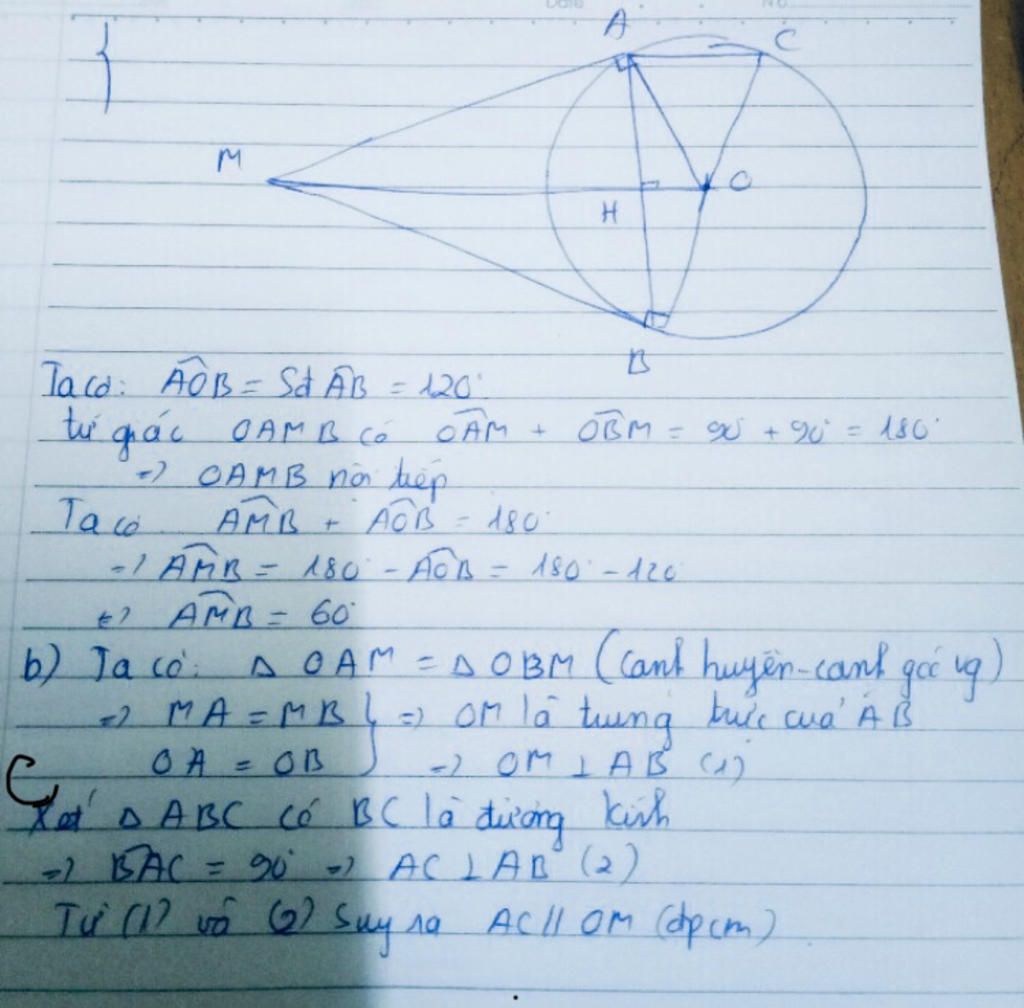 Date No
A C
M O
H
B
Ta có: AÔB = Sđ AB = 120°
tứ giác OAMB có OÂM + OB̂M = 90° + 90° = 180°
=> OAMB nội tiếp
Ta có AM̂B + AÔB = 180°
=> AM̂B = 180° - AÔB = 180° - 120
<=> AM̂B = 60°
b) Ta có: Δ OAM = Δ OBM (cạnh huyền-cạnh góc vg)
=> MA = MB } => OM là trung trực của AB
OA = OB => OM ⊥ AB (1)
C
Xét Δ ABC có BC là đường kính
=> BÂC = 90° => AC ⊥ AB (2)
Từ (1) và (2) suy ra AC // OM (đpcm)